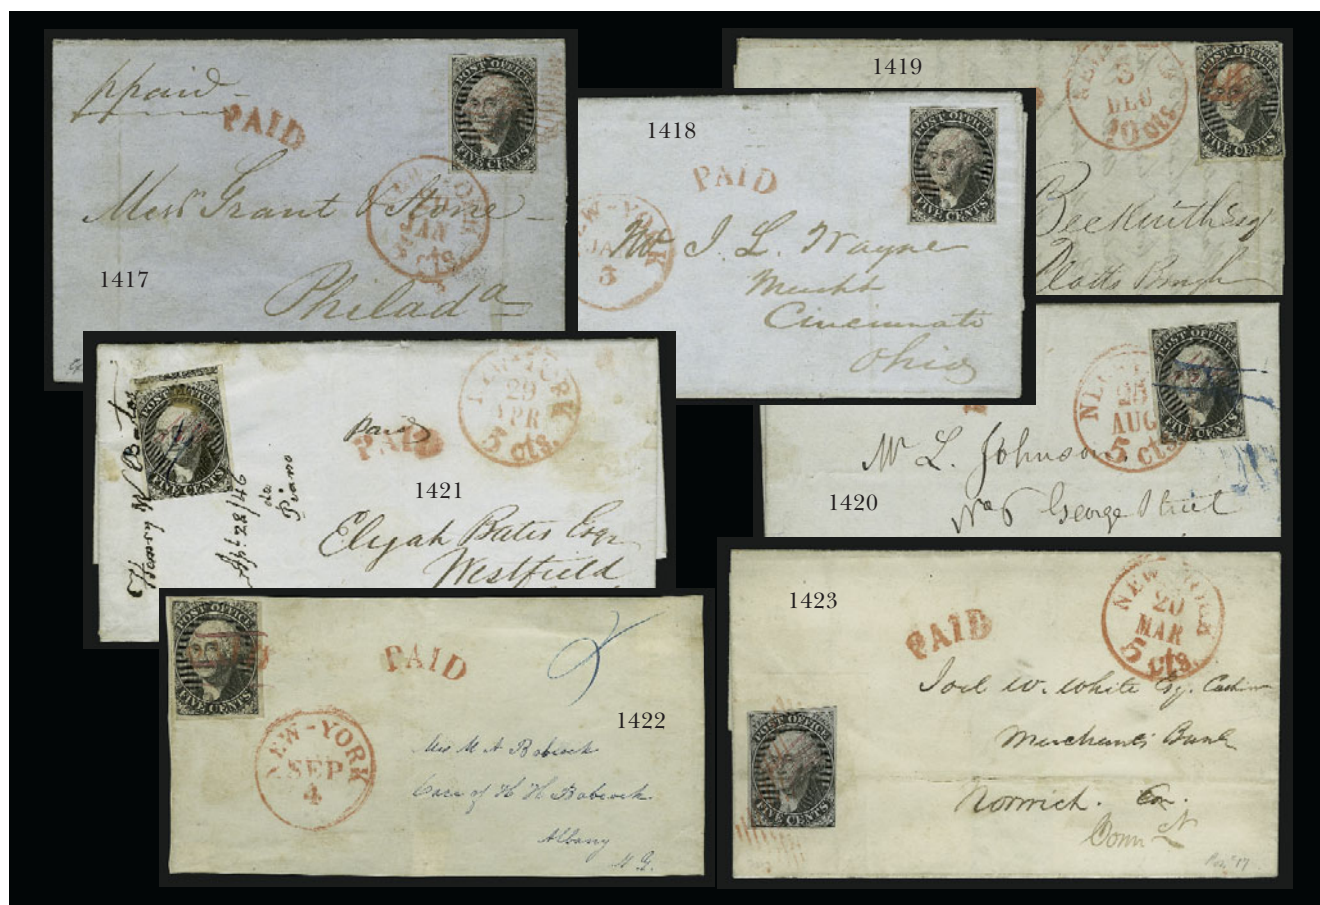 ppaid
PAID
POST OFFICE
FIVE CENTS
Messrs Grant & Stone
NEW-YORK
JAN
cts
1417
Philada
1418
PAID
POST OFFICE
FIVE CENTS
NEW-YORK
JA
3
J. L. Wayne
Mercht
Cincinnati
Ohio
1419
NEW
5
DEC
10 cts
POST OFFICE
FIVE CENTS
Beckwith Esq
Platts Burgh
25
AUG
5 cts
POST OFFICE
FIVE CENTS
Mr L. Johnson.
1420
No 6 George Street
POST OFFICE
FIVE CENTS
Henry W Bates
Apl 28/46
do
Piano
NEW-YORK
29
APR
5 cts.
Paid
PAID
1421
Elijah Bates Esqr
Westfield
POST OFFICE
FIVE CENTS
PAID
1422
NEW-YORK
SEP
4
Mrs M A Babcock
Care of H H Babcock
Albany
N.Y.
1423
NEW-YORK
20
MAR
5 cts.
PAID
Joel W. White Esq. Cashier
Merchants Bank
Norwich. Co.
Conn
POST OFFICE
FIVE CENTS